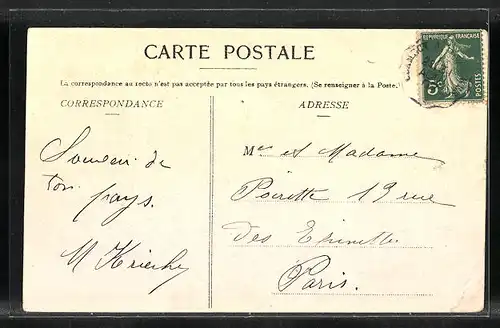 CARTE POSTALE
La correspondance au recto n'est pas acceptée par tous les pays étrangers. (Se renseigner à la Poste.)
CORRESPONDANCE
ADRESSE
RÉPUBLIQUE FRANÇAISE
5c
POSTES
Souvenir de
ton pays.
M
Mr et Madame
Poirette 19 rue
des Epinettes
Paris.